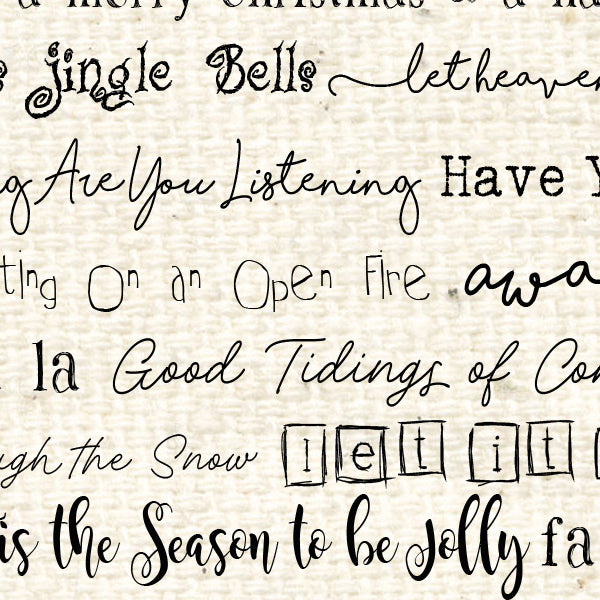 a merry Christmas & a ha
s jingle Bells let heaven
ng Are You Listening Have Y
sting On an Open Fire awa
la Good Tidings of Com
ugh the Snow let it
is the Season to be Jolly fa